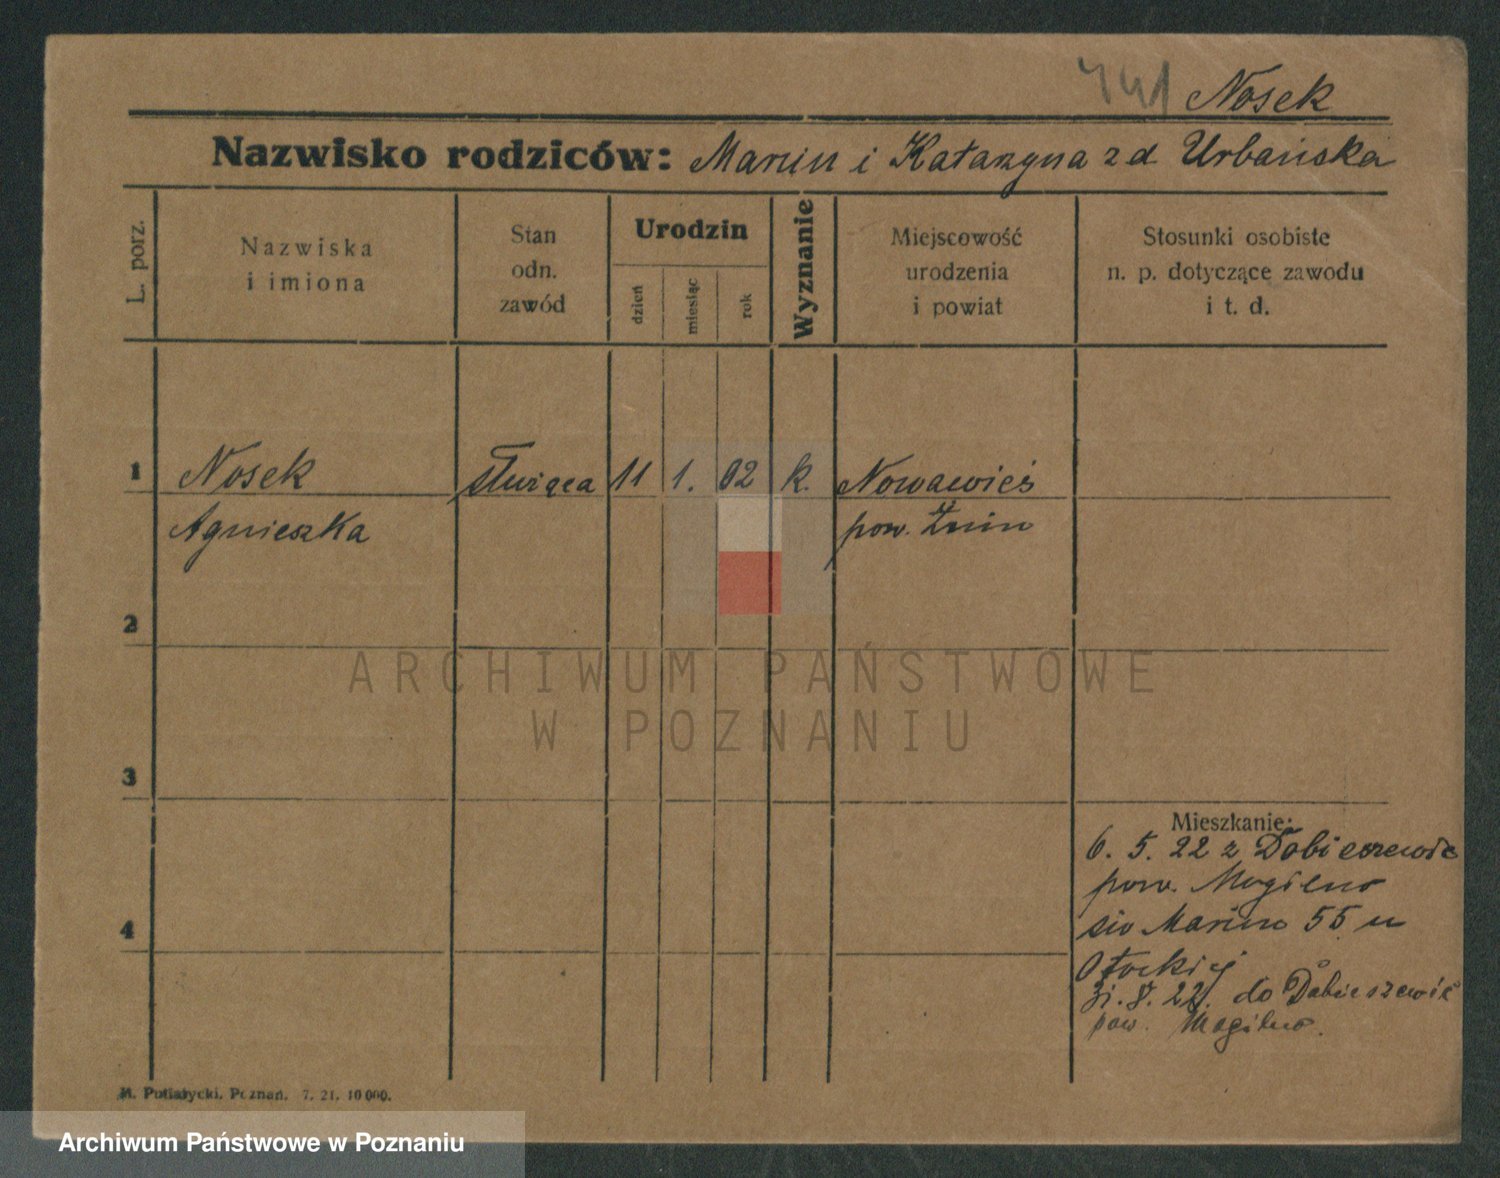 741 Nosek
Nazwisko rodziców: Marcin i Katarzyna z d Urbańska
L. porz.
Nazwiska
i imiona
Stan
odn.
zawód
Urodzin
dzień
miesiąc
rok
Wyznanie
Miejscowość
urodzenia
i powiat
Stosunki osobiste
n. p. dotyczące zawodu
i t. d.
1 Nosek służąca 11 1. 02 k. Nowawieś
Agnieszka pow. Żnin
2
3
4
ARCHIWUM PAŃSTWOWE
W POZNANIU
Mieszkanie:
6. 5. 22 z Dobieszewic
pow. Mogilno
Marcin 55 u
31. 8. 22. do Dobieszewic
pow. Mogilno.
Poznań. 7. 21. 10 000.
Archiwum Państwowe w Poznaniu